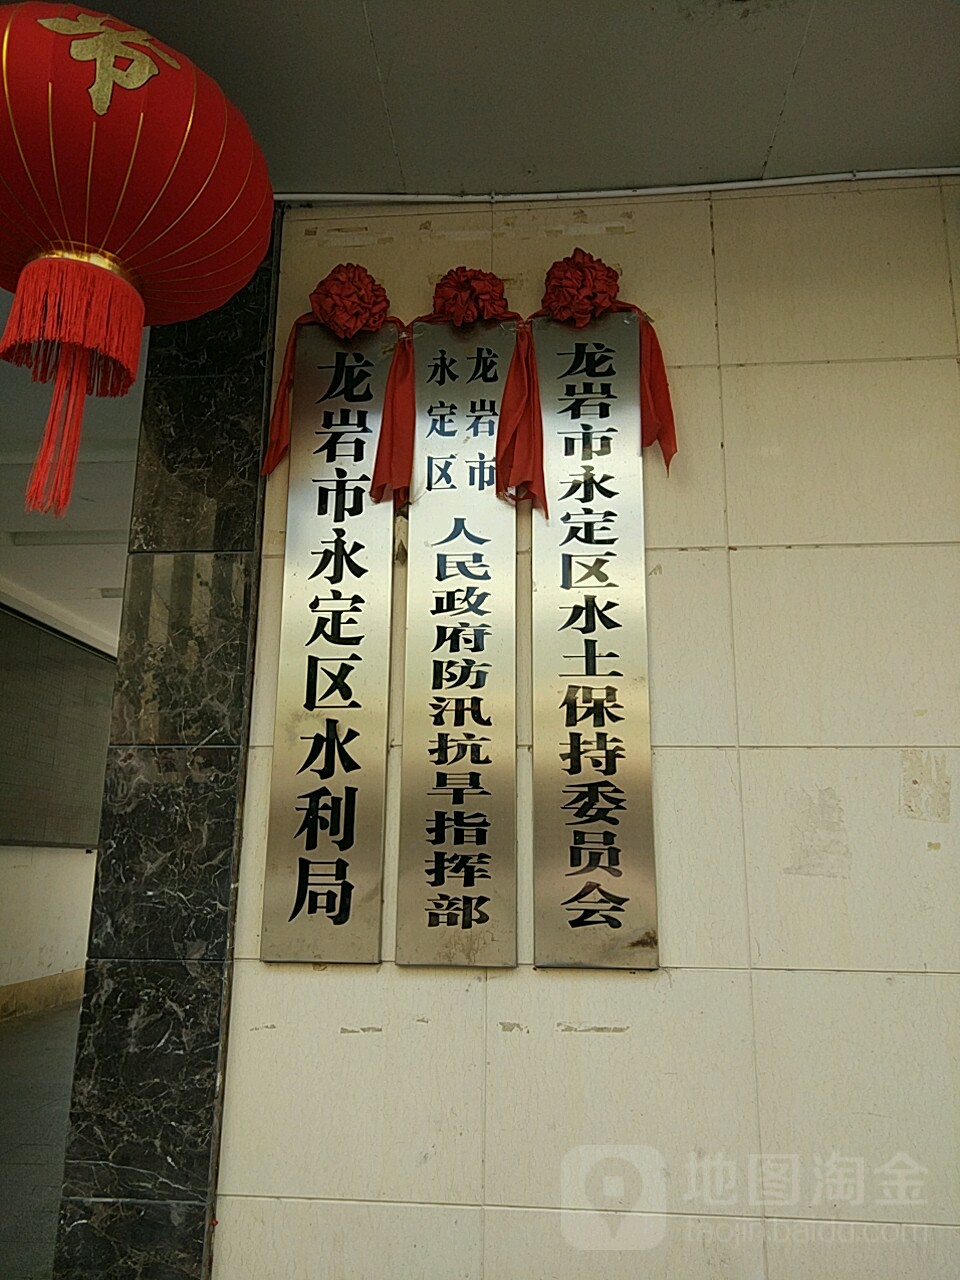 节
龙岩市永定区水利局
龙岩市
永定区
人民政府防汛抗旱指挥部
龙岩市永定区水土保持委员会
地图淘金
taojin.baidu.com